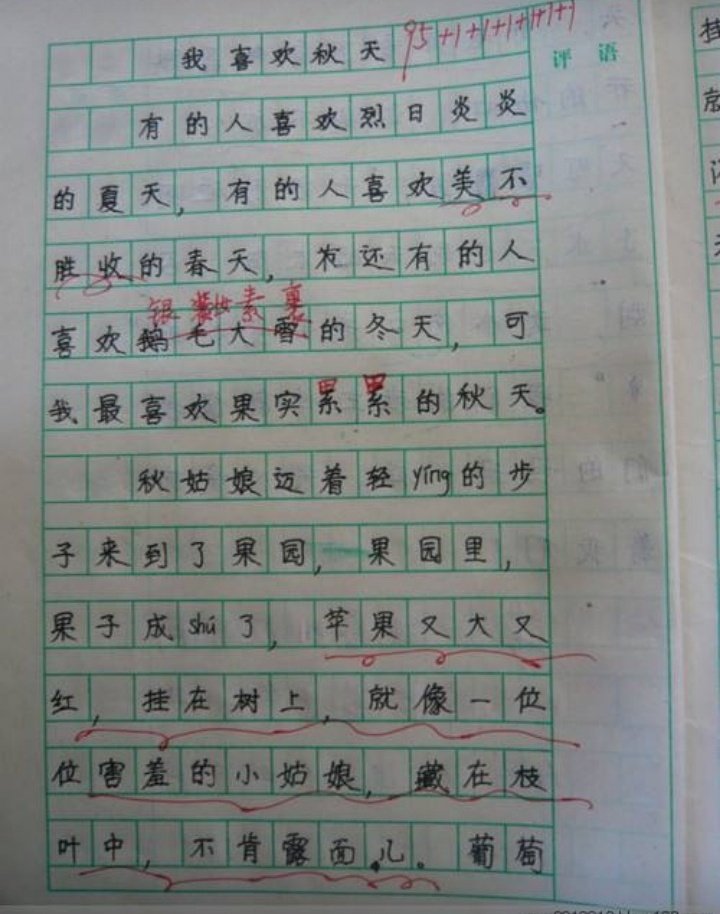 我喜欢秋天 95+1+1+1+1+1+1
评语
有的人喜欢烈日炎炎
的夏天，有的人喜欢美不
胜收的春天，还有的人
银装素裹
喜欢鹅毛大雪的冬天，可
我最喜欢果实累累的秋天。
秋姑娘迈着轻yíng的步
子来到了果园，果园里，
果子成shú了，苹果又大又
红，挂在树上，就像一位
位害羞的小姑娘，藏在枝
叶中，不肯露面儿。葡萄